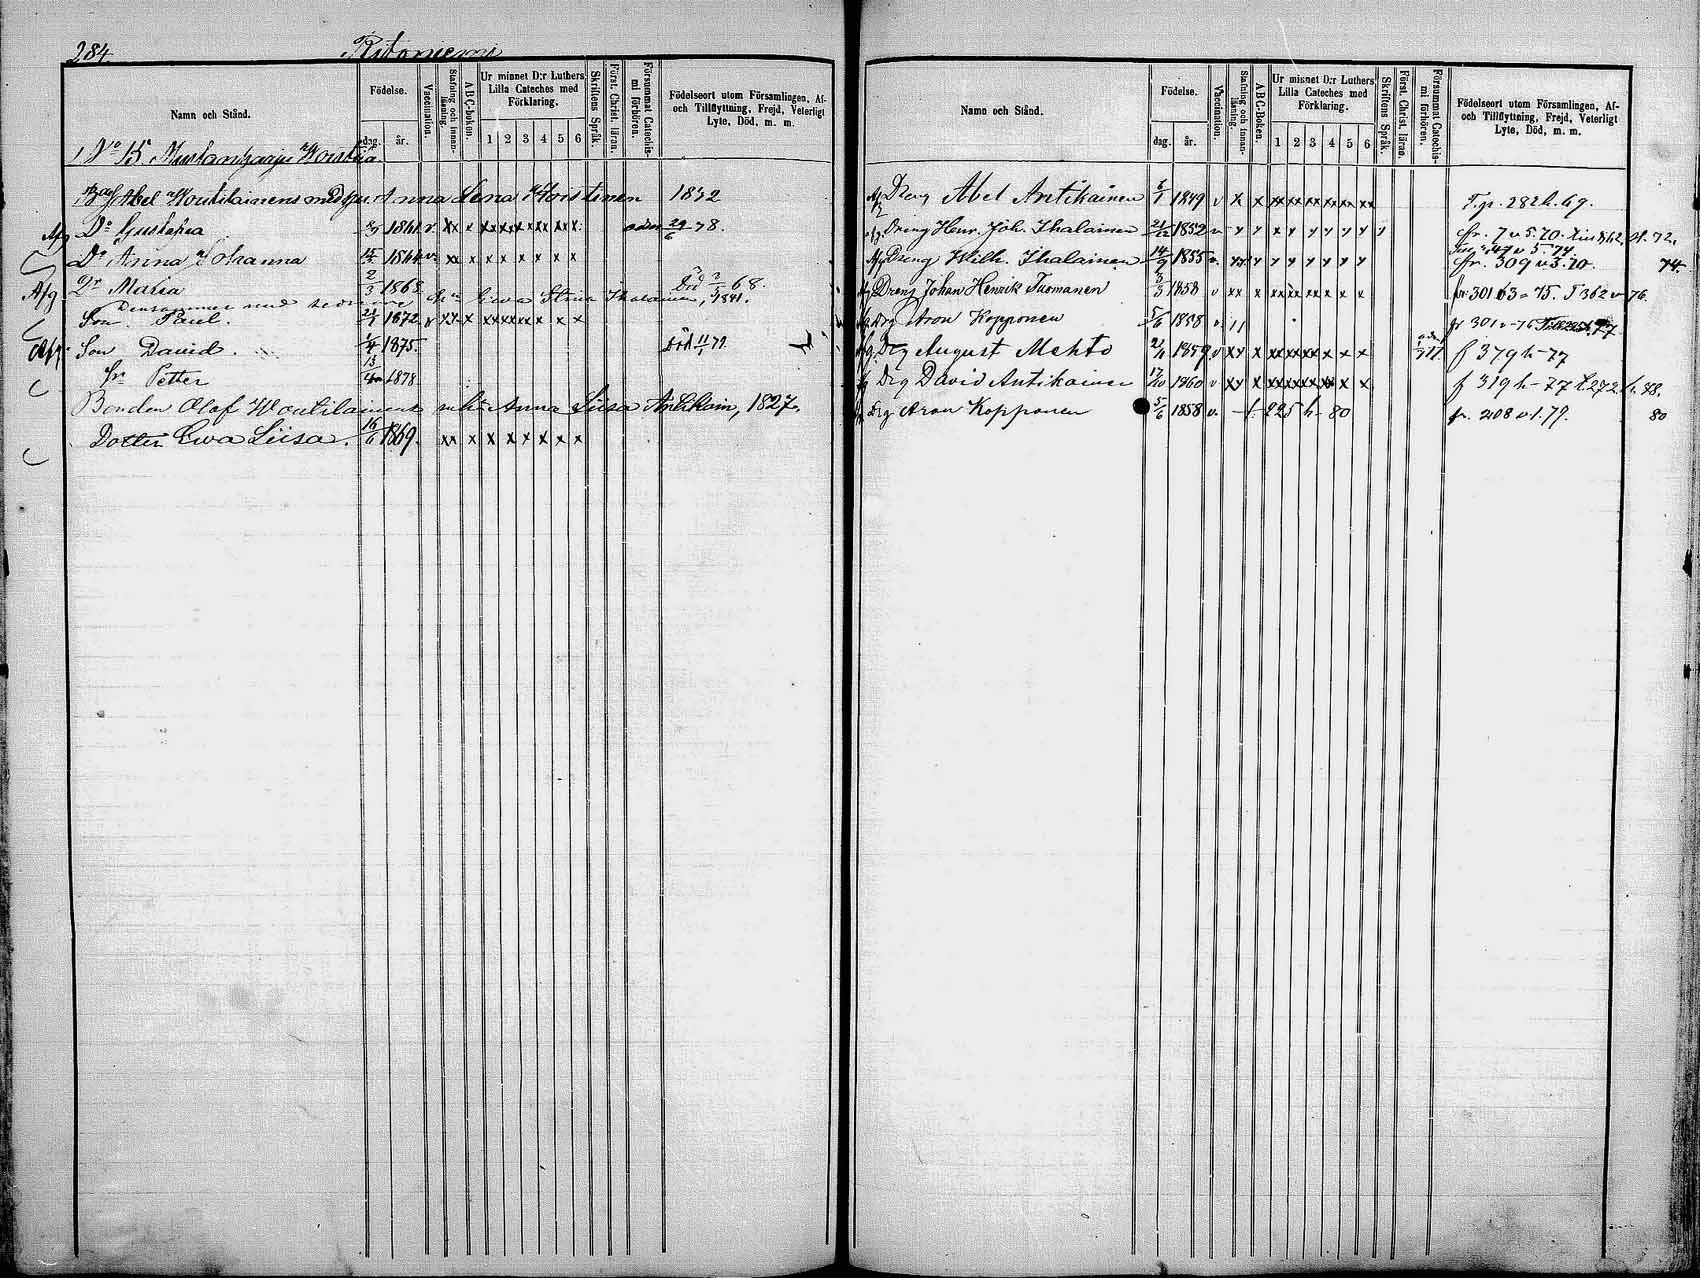 284.
Ritoniemi
Namn och Stånd.
Födelse.
dag. år.
Vaccination.
Stafning och innan-läsning.
ABC-boken.
Ur minnet D:r Luthers Lilla Cateches med Förklaring.
1 2 3 4 5 6
Skriftens Språk.
Först. Christ. läran.
Försummat Catechis-mi förhören.
Födelseort utom Församlingen, Af- och Tillflyttning, Frejd, Veterligt Lyte, Död, m. m.
No 15.
Abel Woutilainens Anna Lena 1832
Afg Dr Gustafva 1861 v. xx x xxxxx xxx x x 29/6 78.
Dr Anna Johanna 15/3 1864 v. xx x x x x x x x
Afg Dr Maria 2/3 1868 Död 68.
Densammes med sednare Ewa Stina Ihalainen, 1841.
Son Paul. 1872 v xx x xxxxxx x x x
Afg. Son David. 1/4 1875. Död 11/1 79.
Sn Petter 13/4 1878
Bonden Olof Woutilainens Anna Liisa Antikain, 1827.
Dotter Ewa Liisa. 16/6 1869. xx x x x x x x x
Namn och Stånd.
Födelse.
dag. år.
Vaccination.
Stafning och innan-läsning.
ABC-Boken.
Ur minnet D:r Luthers Lilla Cateches med Förklaring.
1 2 3 4 5 6
Skriftens Språk.
Först. Christ. läran.
Försummat Catechis-mi förhören.
Födelseort utom Församlingen, Af- och Tillflyttning, Frejd, Veterligt Lyte, Död, m. m.
Dreng Abel Antikainen 6/1 1849 v x x xx xx xx xx xx T. p. 282 h. 69.
Dreng Henr. Joh. Ihalainen 21/12 1852 v. fr. 7 v 5. 70. 72.
Dreng Wilh. Ihalainen 14/9 1855 v. fr. 309 v 3. 70. 74.
Dreng Johan Henrik Tuomainen 3/3 1858 v xx x 75. T 362 v 76.
Drg Aron Kopponen 5/6 1858 v. 11 fr 301 v 76 77
Drg August Mehto 2/11 1859 v xx x xx xx xx x x x f 379 h - 77
Drg David Antikainen 17/10 1860 v xx x x f 319 h - 77 t 272 h. 78.
Drg Aron Kopponen 5/6 1858 v. f. 225 h - 80 fr. 208 v 1. 79. 80